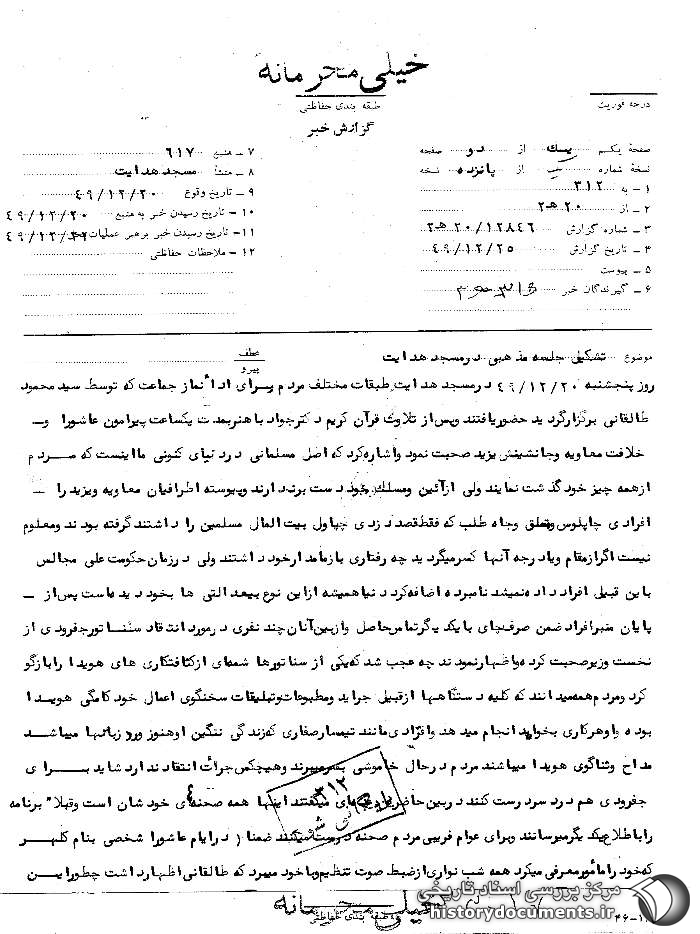 خیلی محرمانه
طبقه بندی حفاظتی
گزارش خبر
درجه فوریت
صفحه یکم یک از دو صفحه
نسخه شماره از پانزده نسخه
۱ - به ۳۱۲
۲ - از ۲۰ هـ ۲
۳ - شماره گزارش ۲۰/۱۲۸۴۶ هـ ۲
۴ - تاریخ گزارش ۴۹/۱۲/۲۵
۵ - پیوست
۶ - گیرندگان خبر
۷ - منبع ۶۱۷
۸ - منشأ مسجد هدایت
۹ - تاریخ وقوع ۴۹/۱۲/۲۰
۱۰ - تاریخ رسیدن خبر به منبع ۴۹/۱۲/۲۰
۱۱ - تاریخ رسیدن خبر برهبر عملیات ۴۹/۱۲/۲۲
۱۲ - ملاحظات حفاظتی
موضوع تشکیل جلسه مذهبی در مسجد هدایت
عطف
پیرو
روز پنجشنبه ۴۹/۱۲/۲۰ در مسجد هدایت طبقات مختلف مردم برای اداء نماز جماعت که توسط سید محمود
طالقانی برگزار گردید حضور یافتند و پس از تلاوت قرآن کریم دکتر جواد باهنر بمدت یکساعت پیرامون عاشورا و
خلافت معاویه و جانشینش یزید صحبت نمود و اشاره کرد که اصل مسلمانی در دنیای کنونی ما اینست که مردم
از همه چیز خود گذشت نمایند ولی از آئین و مسلک خود دست برندارند و پیوسته اطرافیان معاویه و یزید را
افرادی چاپلوس و متملق و جاه طلب که فقط قصد دزدی چپاول بیت المال مسلمین را داشتند گرفته بودند و معلوم
نیست اگر از مقام و یا درجه آنها کسر میگردید چه رفتاری با زمامدار خود داشتند ولی در زمان حکومت علی مجالس
باین قبیل افراد داده نمیشد نامبرده اضافه کرد دنیا همیشه از این نوع بیعدالتی ها بخود دیده است پس از
پایان منبر افراد ضمن صرف چای با یکدیگر تماس حاصل و از بین آنان چند نفری در مورد انتقاد سناتور جفرودی از
نخست وزیر صحبت کرده و اظهار نمودند چه عجب شد که یکی از سناتورها شمه‌ای از کثافتکاری های هویدا را بازگو
کرد و مردم همه میدانند که کلیه دستگاهها از قبیل جراید و مطبوعات و تبلیغات سخنگوی اعمال خودکامگی هویدا
بوده و او هر کاری بخواهد انجام میدهد و افرادی مانند تیمسار صفاری که زندگی ننگین او هنوز ورد زبانها میباشد
مداح و ثناگوی هویدا میباشند مردم در حال خاموشی بسر میبرند و هیچکس جرأت انتقاد ندارد شاید برای
جفرودی هم دردسر درست کنند در بین حاضرین میگفتند اینها همه صحنه‌های خودشان است و قبلا" برنامه
را باطلاع یکدیگر میرسانند و برای عوام فریبی مردم صحنه درست میکنند ضمنا ( در ایام عاشورا شخصی بنام کلهر
که خود را مأمور معرفی میکرد همه شب نواری از ضبط صوت تنظیم و با خود میبرد که طالقانی اظهار داشت چطور این
۳۱۲
خیلی محرمانه
طبقه بندی حفاظتی
مرکز بررسی اسناد تاریخی
historydocuments.ir